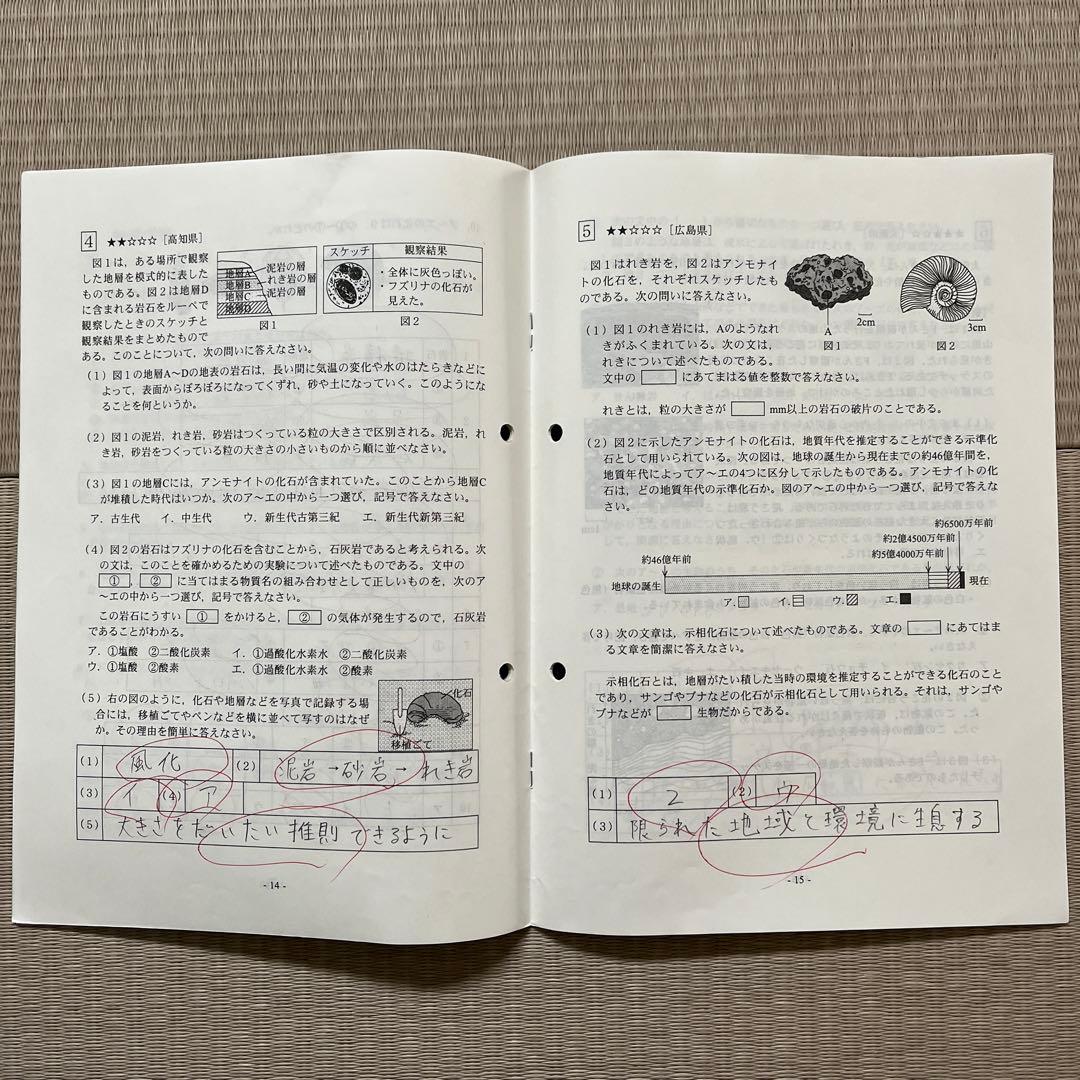 4 ★★☆☆☆ [高知県]
図1は，ある場所で観察
した地層を模式的に表した
ものである。図2は地層D
に含まれる岩石をルーペで
観察したときのスケッチと
観察結果をまとめたもので
ある。このことについて，次の問いに答えなさい。
地層A
地層B
地層C
地層D
泥岩の層
れき岩の層
泥岩の層
図1
スケッチ
観察結果
・全体に灰色っぽい。
・フズリナの化石が
見えた。
図2
(1) 図1の地層A～Dの地表の岩石は，長い間に気温の変化や水のはたらきなどに
よって，表面からぼろぼろになってくずれ，砂や土になっていく。このようにな
ることを何というか。
(2) 図1の泥岩，れき岩，砂岩はつくっている粒の大きさで区別される。泥岩，れ
き岩，砂岩をつくっている粒の大きさの小さいものから順に並べなさい。
(3) 図1の地層Cには，アンモナイトの化石が含まれていた。このことから地層C
が堆積した時代はいつか。次のア～エの中から一つ選び，記号で答えなさい。
ア．古生代 イ．中生代 ウ．新生代古第三紀 エ．新生代新第三紀
(4) 図2の岩石はフズリナの化石を含むことから，石灰岩であると考えられる。次
の文は，このことを確かめるための実験について述べたものである。文中の
①，②に当てはまる物質名の組み合わせとして正しいものを，次のア
～エの中から一つ選び，記号で答えなさい。
この岩石にうすい ① をかけると，② の気体が発生するので，石灰岩
であることがわかる。
ア．①塩酸 ②二酸化炭素 イ．①過酸化水素水 ②二酸化炭素
ウ．①塩酸 ②酸素 エ．①過酸化水素水 ②酸素
(5) 右の図のように，化石や地層などを写真で記録する場
合には，移植ごてやペンなどを横に並べて写すのはなぜ
か。その理由を簡単に答えなさい。
化石
移植ごて
(1) 風化 (2) 泥岩→砂岩→れき岩
(3) イ (4) ア
(5) 大きさをだいたい推則できるように
- 14 -
5 ★★☆☆☆ [広島県]
図1はれき岩を，図2はアンモナイ
トの化石を，それぞれスケッチしたも
のである。次の問いに答えなさい。
(1) 図1のれき岩には，Aのようなれ
きがふくまれている。次の文は，
れきについて述べたものである。
文中の にあてはまる値を整数で答えなさい。
A
2cm
図1
3cm
図2
れきとは，粒の大きさが mm以上の岩石の破片のことである。
(2) 図2に示したアンモナイトの化石は，地質年代を推定することができる示準化
石として用いられている。次の図は，地球の誕生から現在までの約46億年間を，
地質年代によってア～エの4つに区分して示したものである。アンモナイトの化
石は，どの地質年代の示準化石か。図のア～エの中から一つ選び，記号で答えな
さい。
約6500万年前
約2億4500万年前
約46億年前 約5億4000万年前
地球の誕生 現在
ア． イ． ウ． エ．
(3) 次の文章は，示相化石について述べたものである。文章の にあてはま
る文章を簡潔に答えなさい。
示相化石とは，地層がたい積した当時の環境を推定することができる化石のこと
であり，サンゴやブナなどの化石が示相化石として用いられる。それは，サンゴや
ブナなどが 生物だからである。
(1) 2 (2) ウ
(3) 限られた地域と環境に生息する
- 15 -